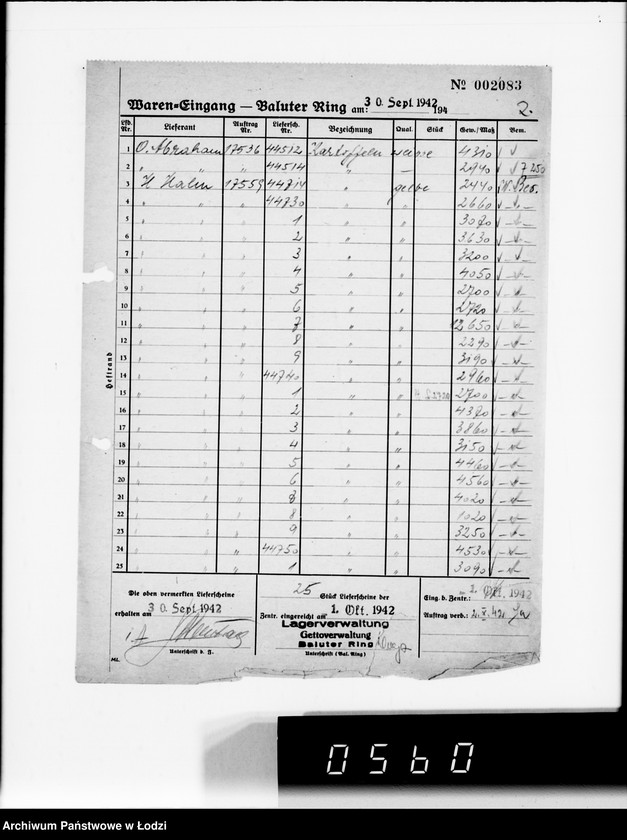 No 002083
Waren=Eingang — Baluter Ring am: 30. Sept. 1942 194
2.
Lfd. Nr. Lieferant Auftrag Nr. Liefersch. Nr. Bezeichnung Qual. Stück Gew./Maß Bem.
1 O. Abraham 17536 44512 Kartoffeln 4310
2 " " " 44514 " 2940 7250
3 17559 44714 " gelbe 2440
4 " " " 44730 " " 2660
5 " " " 1 " " 3080
6 " " " 2 " " 3630
7 " " " 3 " " 3200
8 " " " 4 " " 4050
9 " " " 5 " " 2700
10 " " " 6 " " 2720
11 " " " 7 " " 2650
12 " " " 8 " " 2290
13 " " " 9 " " 3190
14 " " " 44740 " " 2960
15 " " " 1 " " 2700
16 " " " 2 " " 4380
17 " " " 3 " " 3860
18 " " " 4 " " 3150
19 " " " 5 " " 4460
20 " " " 6 " " 4560
21 " " " " " 4020
22 " " " 8 " " 1020
23 " " " 9 " " 3250
24 " " " 44750 " " 4530
25 " " " 1 " " 3090
Heftrand
Die oben vermerkten Lieferscheine
erhalten am 30. Sept. 1942
i. A.
Unterschrift d. J.
25 Stück Lieferscheine der
Zentr. eingereicht am 1. Okt. 1942
Lagerverwaltung
Gettoverwaltung
Baluter Ring
Unterschrift (Bal. Ring)
Eing. b. Zentr.: 2. Okt. 1942
Auftrag verb.: 2. X. 42
0560
Archiwum Państwowe w Łodzi